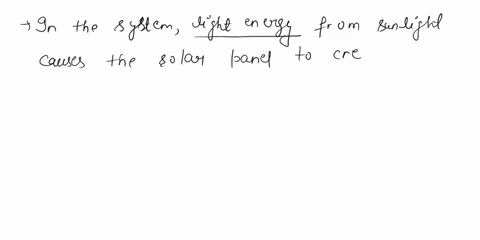 → In the system, light energy from sunlight
causes the solar panel to cre